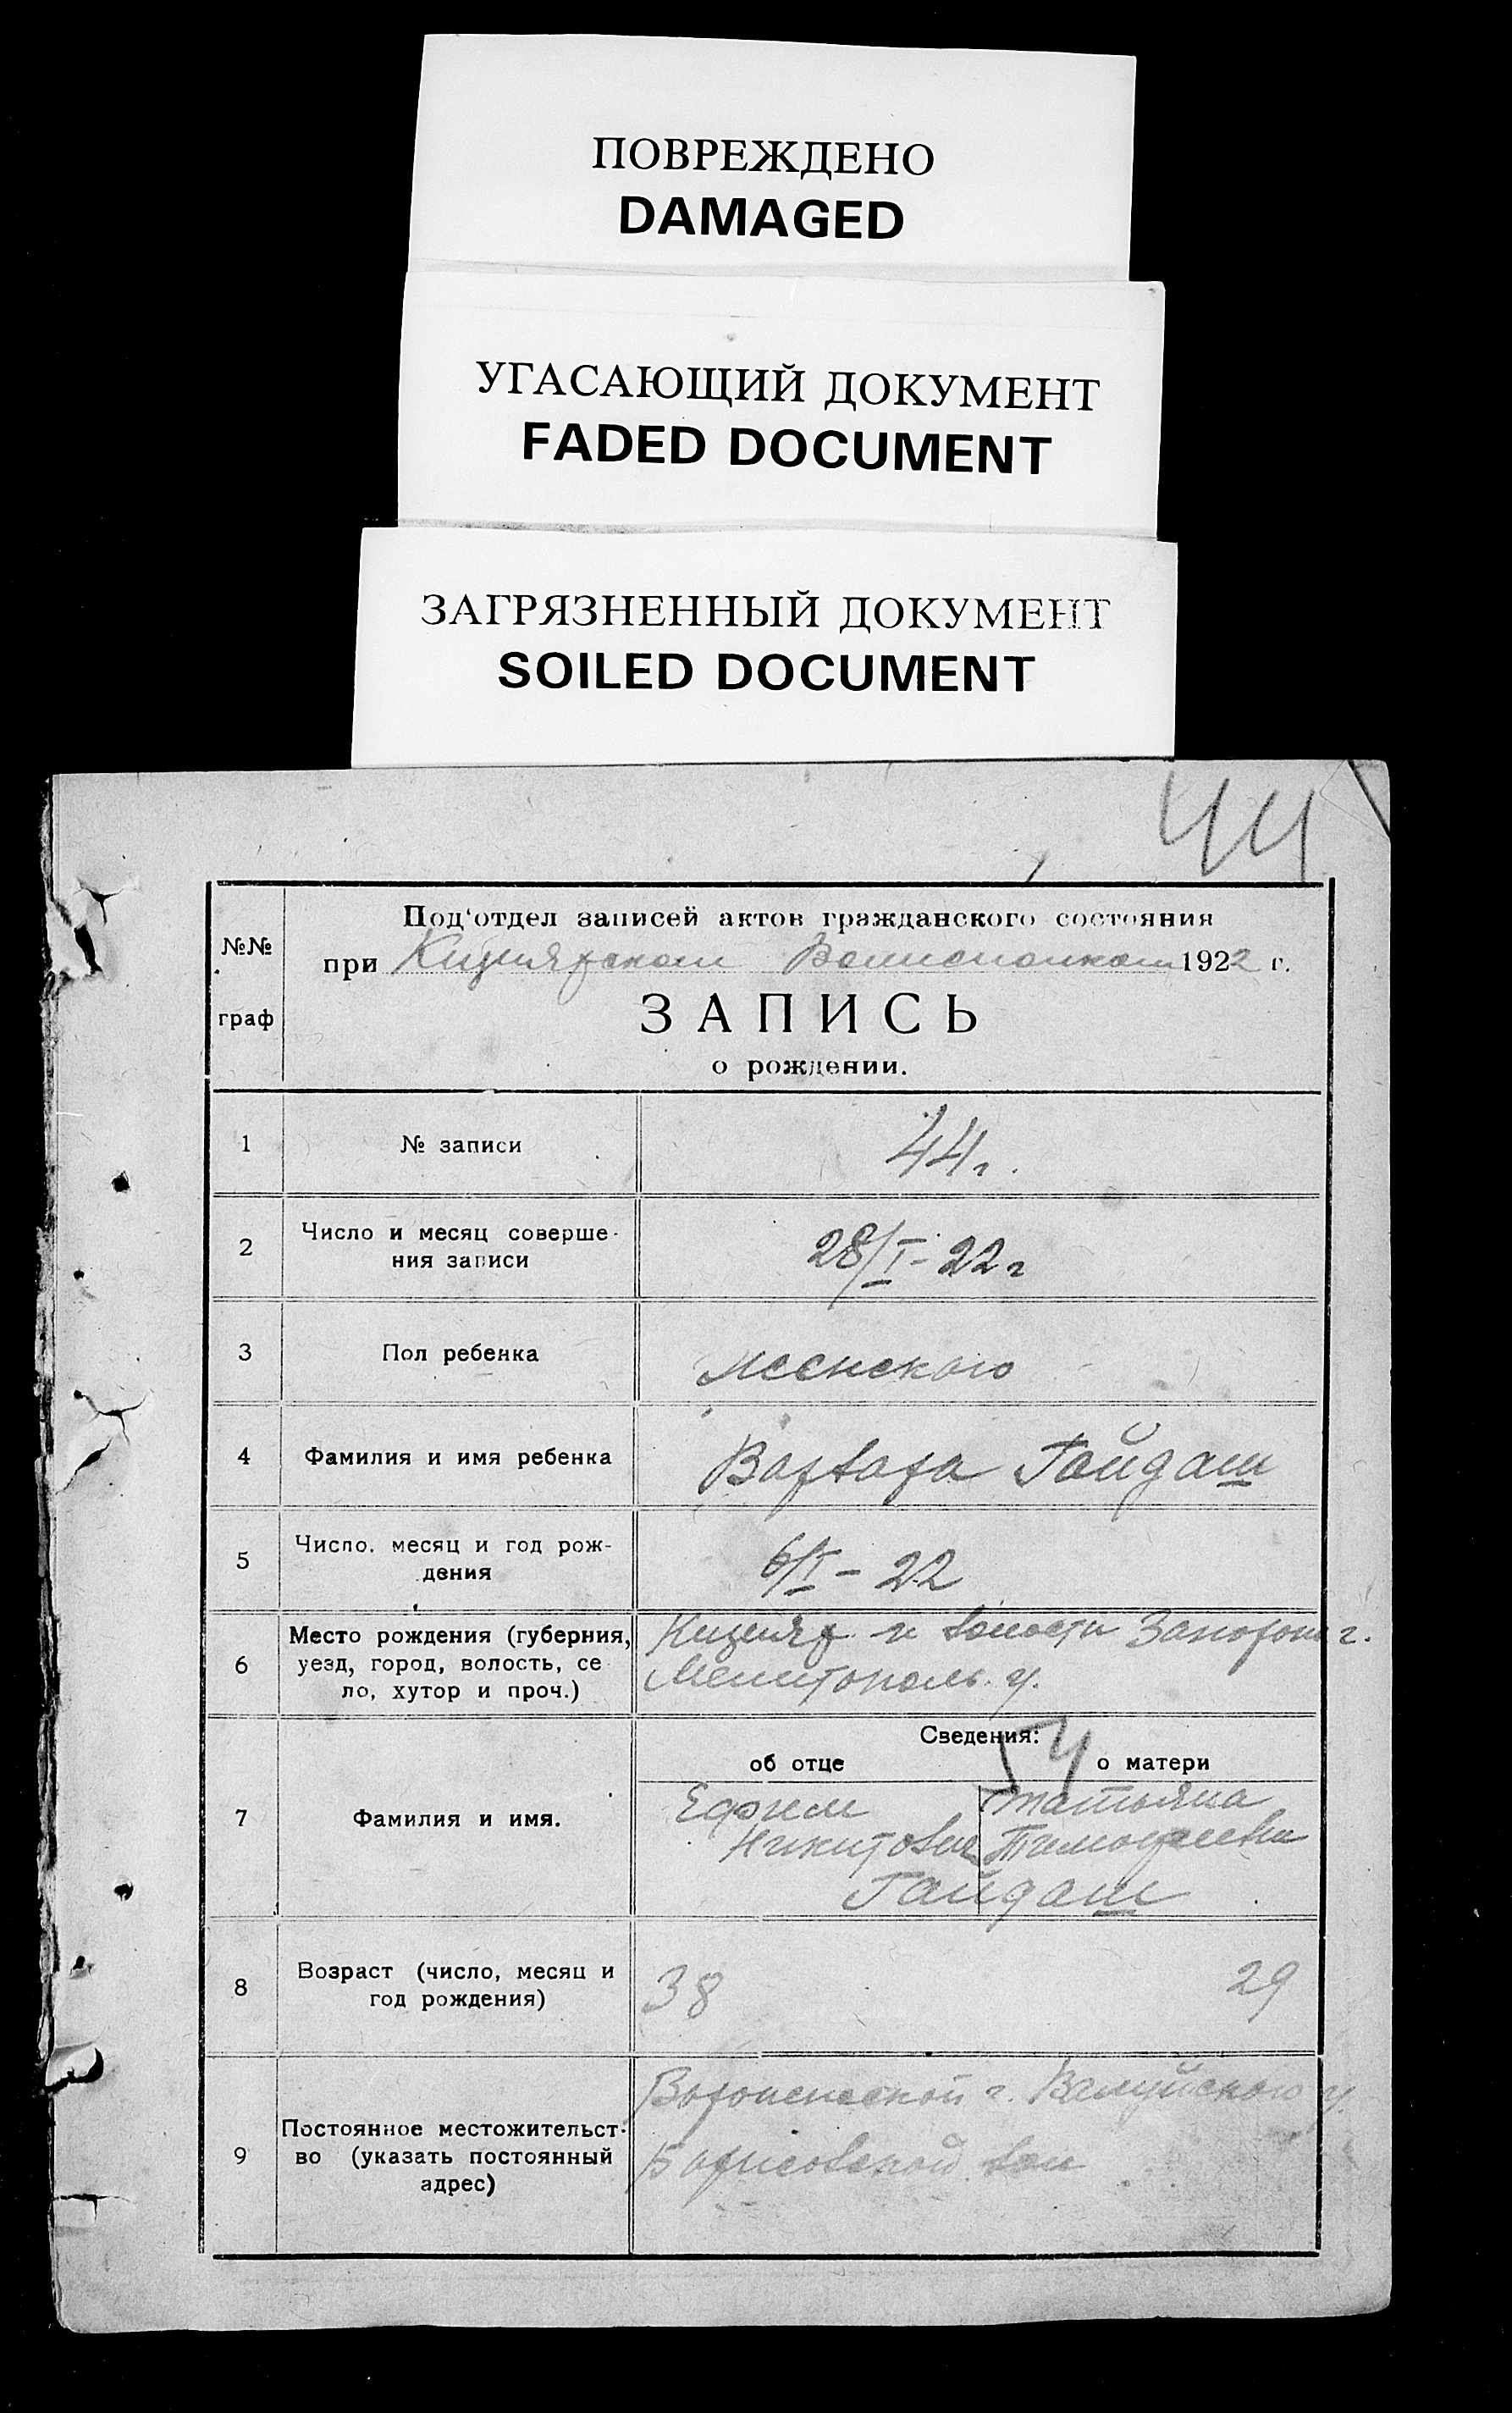 ПОВРЕЖДЕНО
DAMAGED
УГАСАЮЩИЙ ДОКУМЕНТ
FADED DOCUMENT
ЗАГРЯЗНЕННЫЙ ДОКУМЕНТ
SOILED DOCUMENT
44
№№ граф
Под'отдел записей актов гражданского состояния
при Кизиярском Волисполком 1922 г.
ЗАПИСЬ
о рождении.
1 № записи 44г.
2 Число и месяц соверше-
ния записи 28/I-22г
3 Пол ребенка женского
4 Фамилия и имя ребенка Варвара Гайдаш
5 Число, месяц и год рож-
дения 6/I-22
6 Место рождения (губерния, Кизияр и волости Запорож г.
уезд, город, волость, се Мелитополь. у.
ло, хутор и проч.)
Сведения:
54
об отце о матери
7 Фамилия и имя. Ефим Татьяна
Никитович Тимофеевна
Гайдаш
8 Возраст (число, месяц и
год рождения) 38 29
9 Постоянное местожительст-
во (указать постоянный
адрес)
Воронежской г. Валуйского у.
Борисовской вол